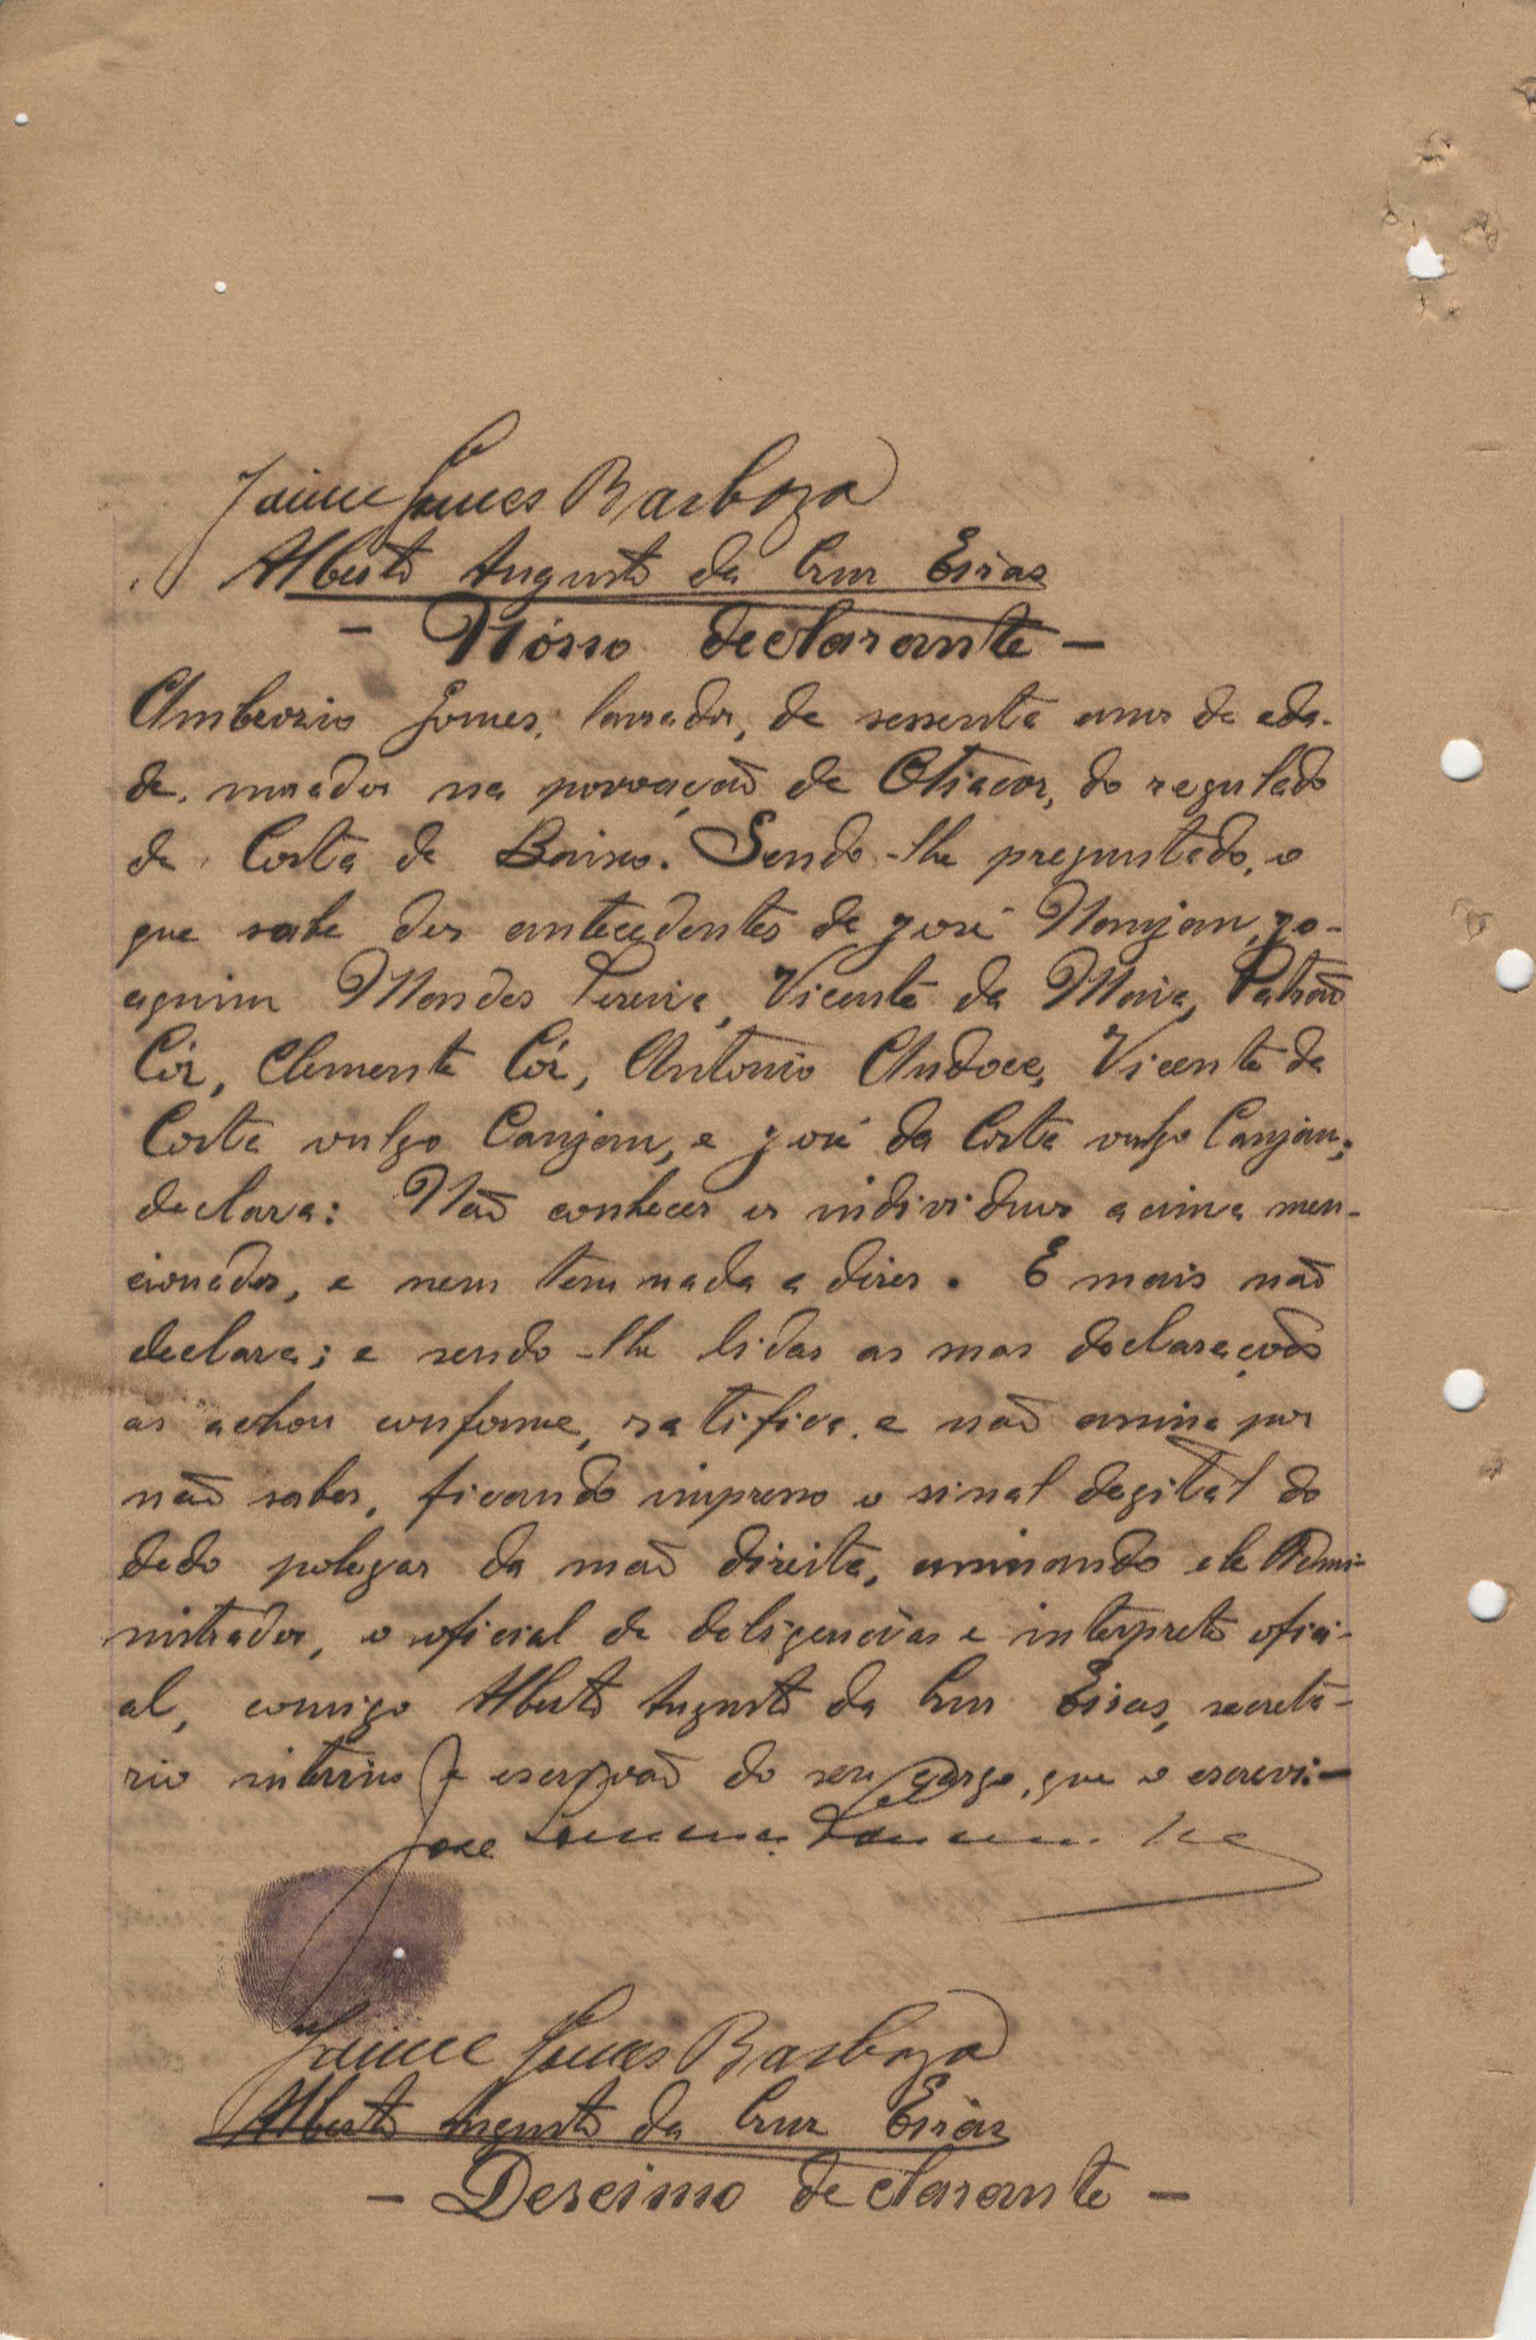 Jaime Gomes Barboza
Alberto Augusto da Cruz Eiras
- Nósso declarante -
Ambrozio Gomes, lavrador, de sessenta anos de eda-
de, morador na povoação de Otiacor, do regulado
de Costa de Baixo. Sendo-lhe preguntado, o
que sabe dos antecedentes de José Nanjan, Jo-
aquim Mendes Pereira, Vicente da Maia, Patrão
Có, Clemente Có, Antonio Andoce, Vicente da
Costa vulgo Canjan, e José da Costa vulgo Canjan;
declara: Não conhecer os individuos acima men-
cionados, e nem tem nada a dizer. E mais não
declara; e sendo-lhe lidas as suas declarações
as achou conforme, ratifica, e não assina por
não saber, ficando impresso o sinal degital do
dedo polegar da mão direita, assinando ele Admi-
nistrador, o oficial de deligencias e interprete ofici-
al, comigo Alberto Augusto da Cruz Eiras, secretá-
rio interino e escrivão do seu cargo, que o escrevi.-
José
Jaime Gomes Barboza
Alberto Augusto da Cruz Eiras
- Deseimo declarante -